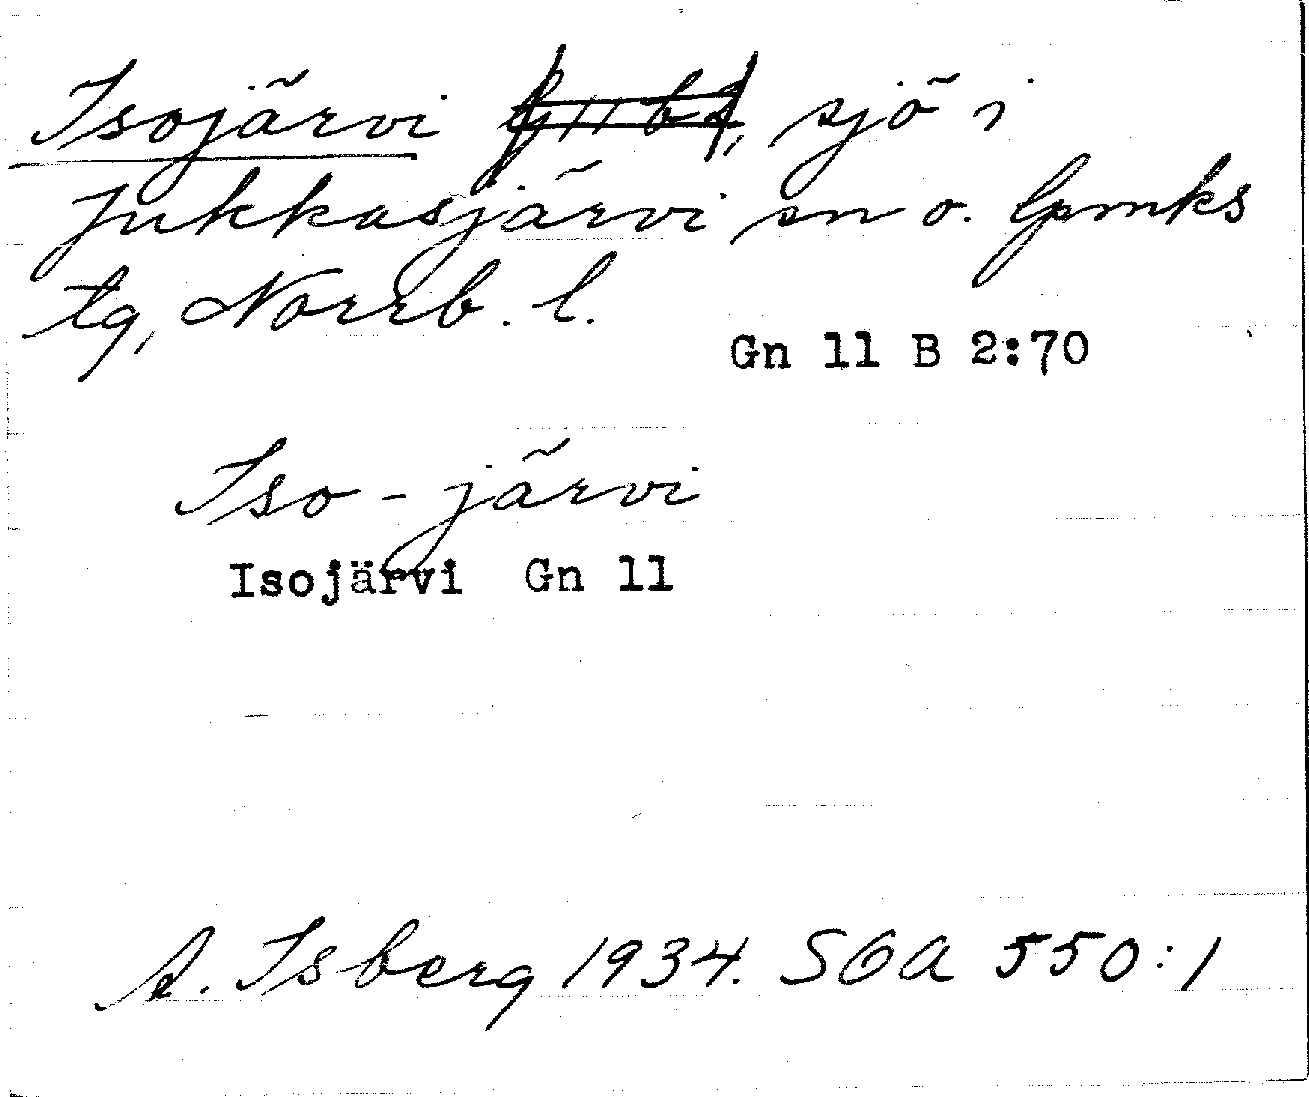 Isojärvi , sjö i
Jukkasjärvi sn o. lpmks
tg, Norrb. l.
Gn 11 B 2:70
Iso - järvi
Isojärvi Gn 11
A. Isberg 1934. SOA 550:1